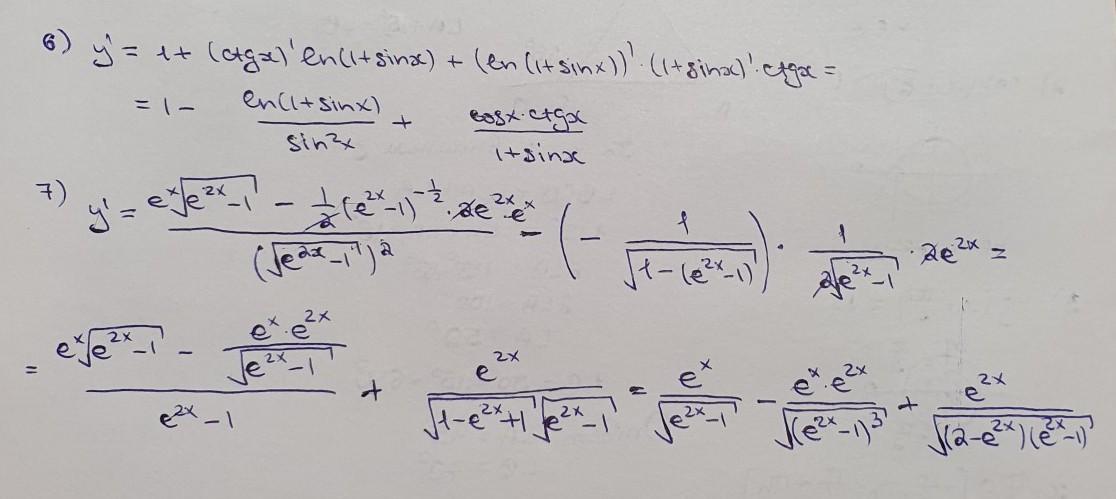 6) y' = 1 + (ctgx)' ln(1+sinx) + (ln(1+sinx))' · (1+sinx)' · ctgx =
= 1 - \frac{ln(1+sinx)}{sin²x} + \frac{cosx · ctgx}{1+sinx}
7) y' = \frac{e^x \sqrt{e^{2x}-1} - \frac{1}{2}(e^{2x}-1)^{-\frac{1}{2}} · 2e^{2x} · e^x}{(\sqrt{e^{2x}-1})^2} - \left(-\frac{1}{\sqrt{1-(e^{2x}-1)}}\right) · \frac{1}{2\sqrt{e^{2x}-1}} · 2e^{2x} =
= \frac{e^x \sqrt{e^{2x}-1} - \frac{e^x · e^{2x}}{\sqrt{e^{2x}-1}}}{e^{2x}-1} + \frac{e^{2x}}{\sqrt{1-e^{2x}+1} \sqrt{e^{2x}-1}} = \frac{e^x}{\sqrt{e^{2x}-1}} - \frac{e^x · e^{2x}}{\sqrt{(e^{2x}-1)^3}} + \frac{e^{2x}}{\sqrt{(2-e^{2x})(e^{2x}-1)}}